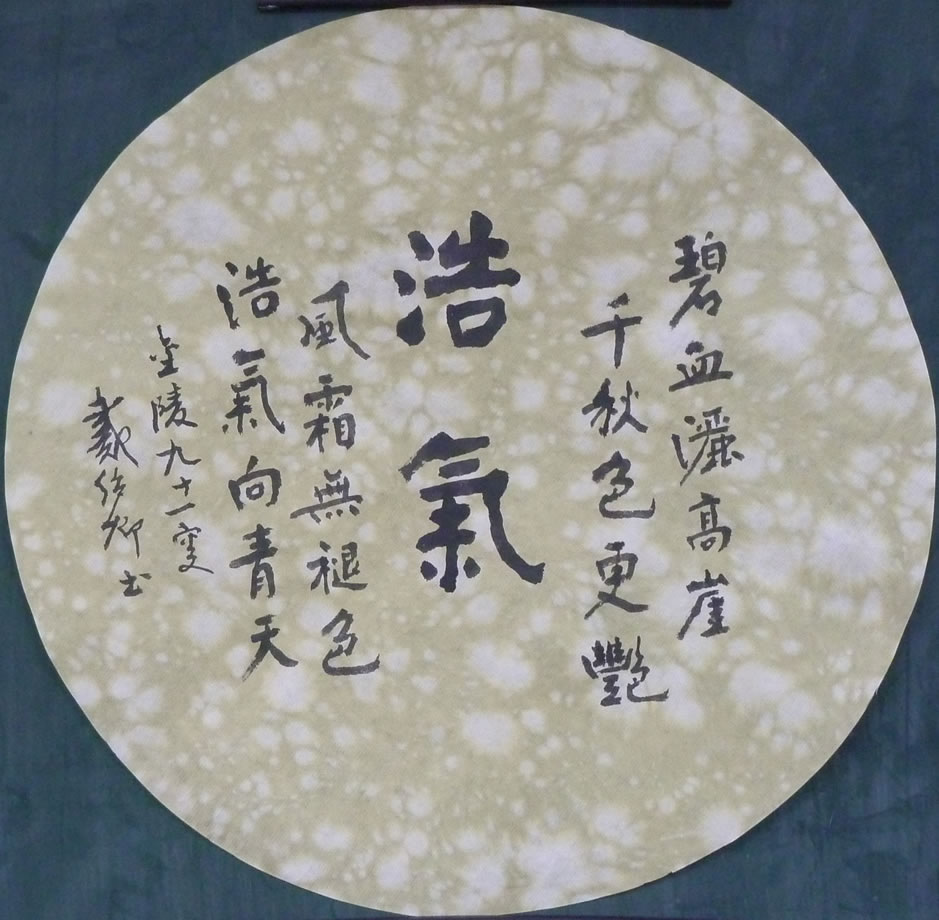 碧血灑高崖
千秋色更艷
浩氣
風霜無褪色
浩氣向青天
金陵九十一叟
戴紹卿书